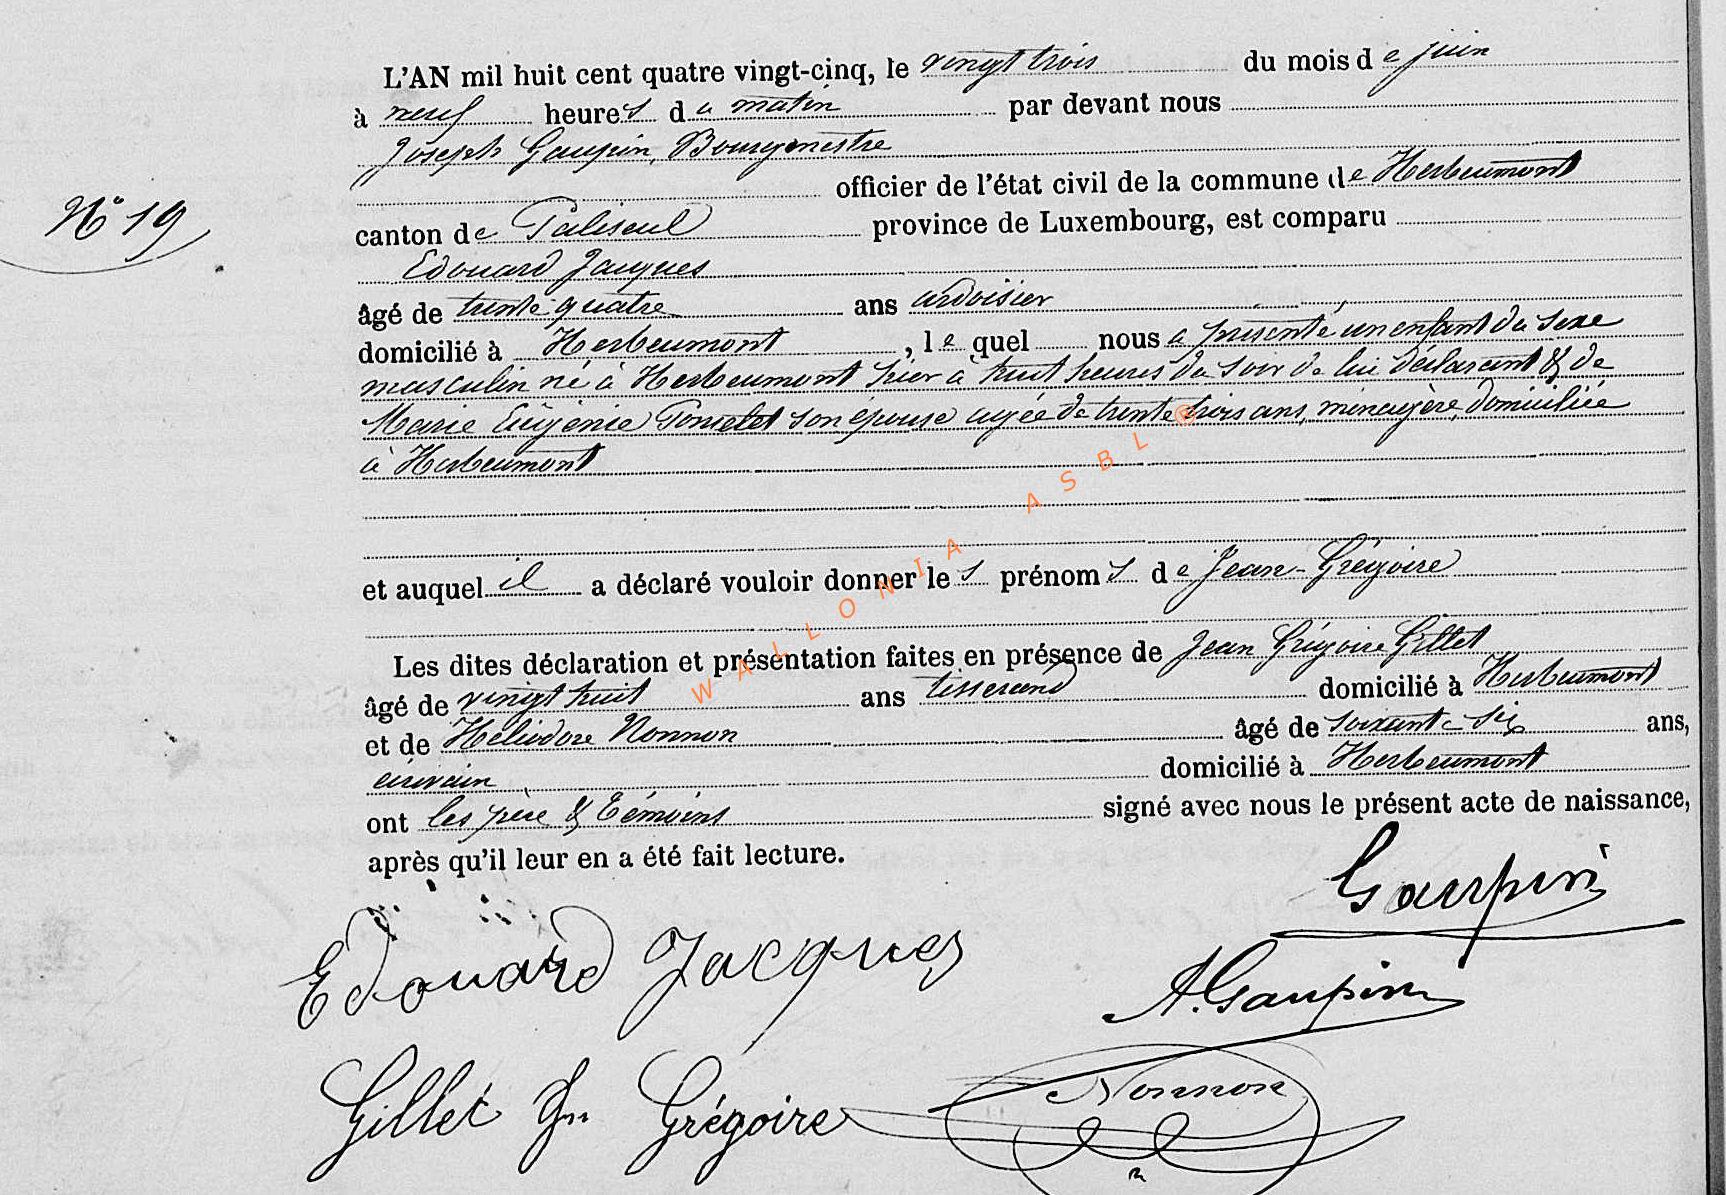 L'AN mil huit cent quatre vingt-cinq, le vingt trois du mois de juin
à neuf heures du matin par devant nous
Joseph Gaupin, Bourgmestre
officier de l'état civil de la commune de Herbeumont
N° 19
canton de Paliseul province de Luxembourg, est comparu
Edouard Jacques
âgé de trente quatre ans ardoisier,
domicilié à Herbeumont, le quel nous a présenté un enfant du sexe
masculin né à Herbeumont hier à huit heures du soir de lui déclarant & de
Marie Eugénie Poncelet son épouse agée de trente trois ans, ménagère, domiciliée
à Herbeumont
et auquel il a déclaré vouloir donner les prénoms de Jean-Grégoire
Les dites déclaration et présentation faites en présence de Jean Grégoire Gillet
âgé de vingt huit ans tisserand domicilié à Herbeumont
et de Héliodore Nonnon âgé de soixante six ans,
écrivain domicilié à Herbeumont
ont les père & témoins signé avec nous le présent acte de naissance,
après qu'il leur en a été fait lecture.
Gaupin
Edouard Jacques
A. Gaupin
Gillet Jn Grégoire
Nonnon
WALLONIA ASBL ®